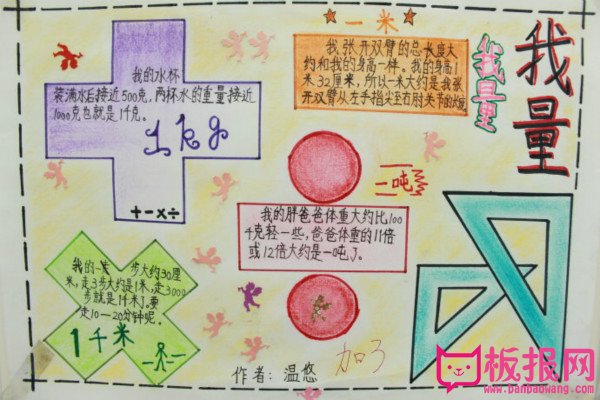 我量
我量
一米
我张开双臂的总长度大
约和我的身高一样。我的身高1
米32厘米，所以一米大约是我张
开双臂从左手指尖至右肘关节的长度
我的水杯
装满水后接近500克，两杯水的重量接近
1000克也就是1千克。
1kg
+-×÷
一吨
我的胖爸爸体重大约比100
千克轻一些，爸爸体重的11倍
或12倍大约是一吨了。
我的一
步大约30厘
米，走3步大约是1米，走3000
步就是1千米了。要
走10—20分钟呢。
1千米
作者：温悠
板报网
www.banbaowang.com